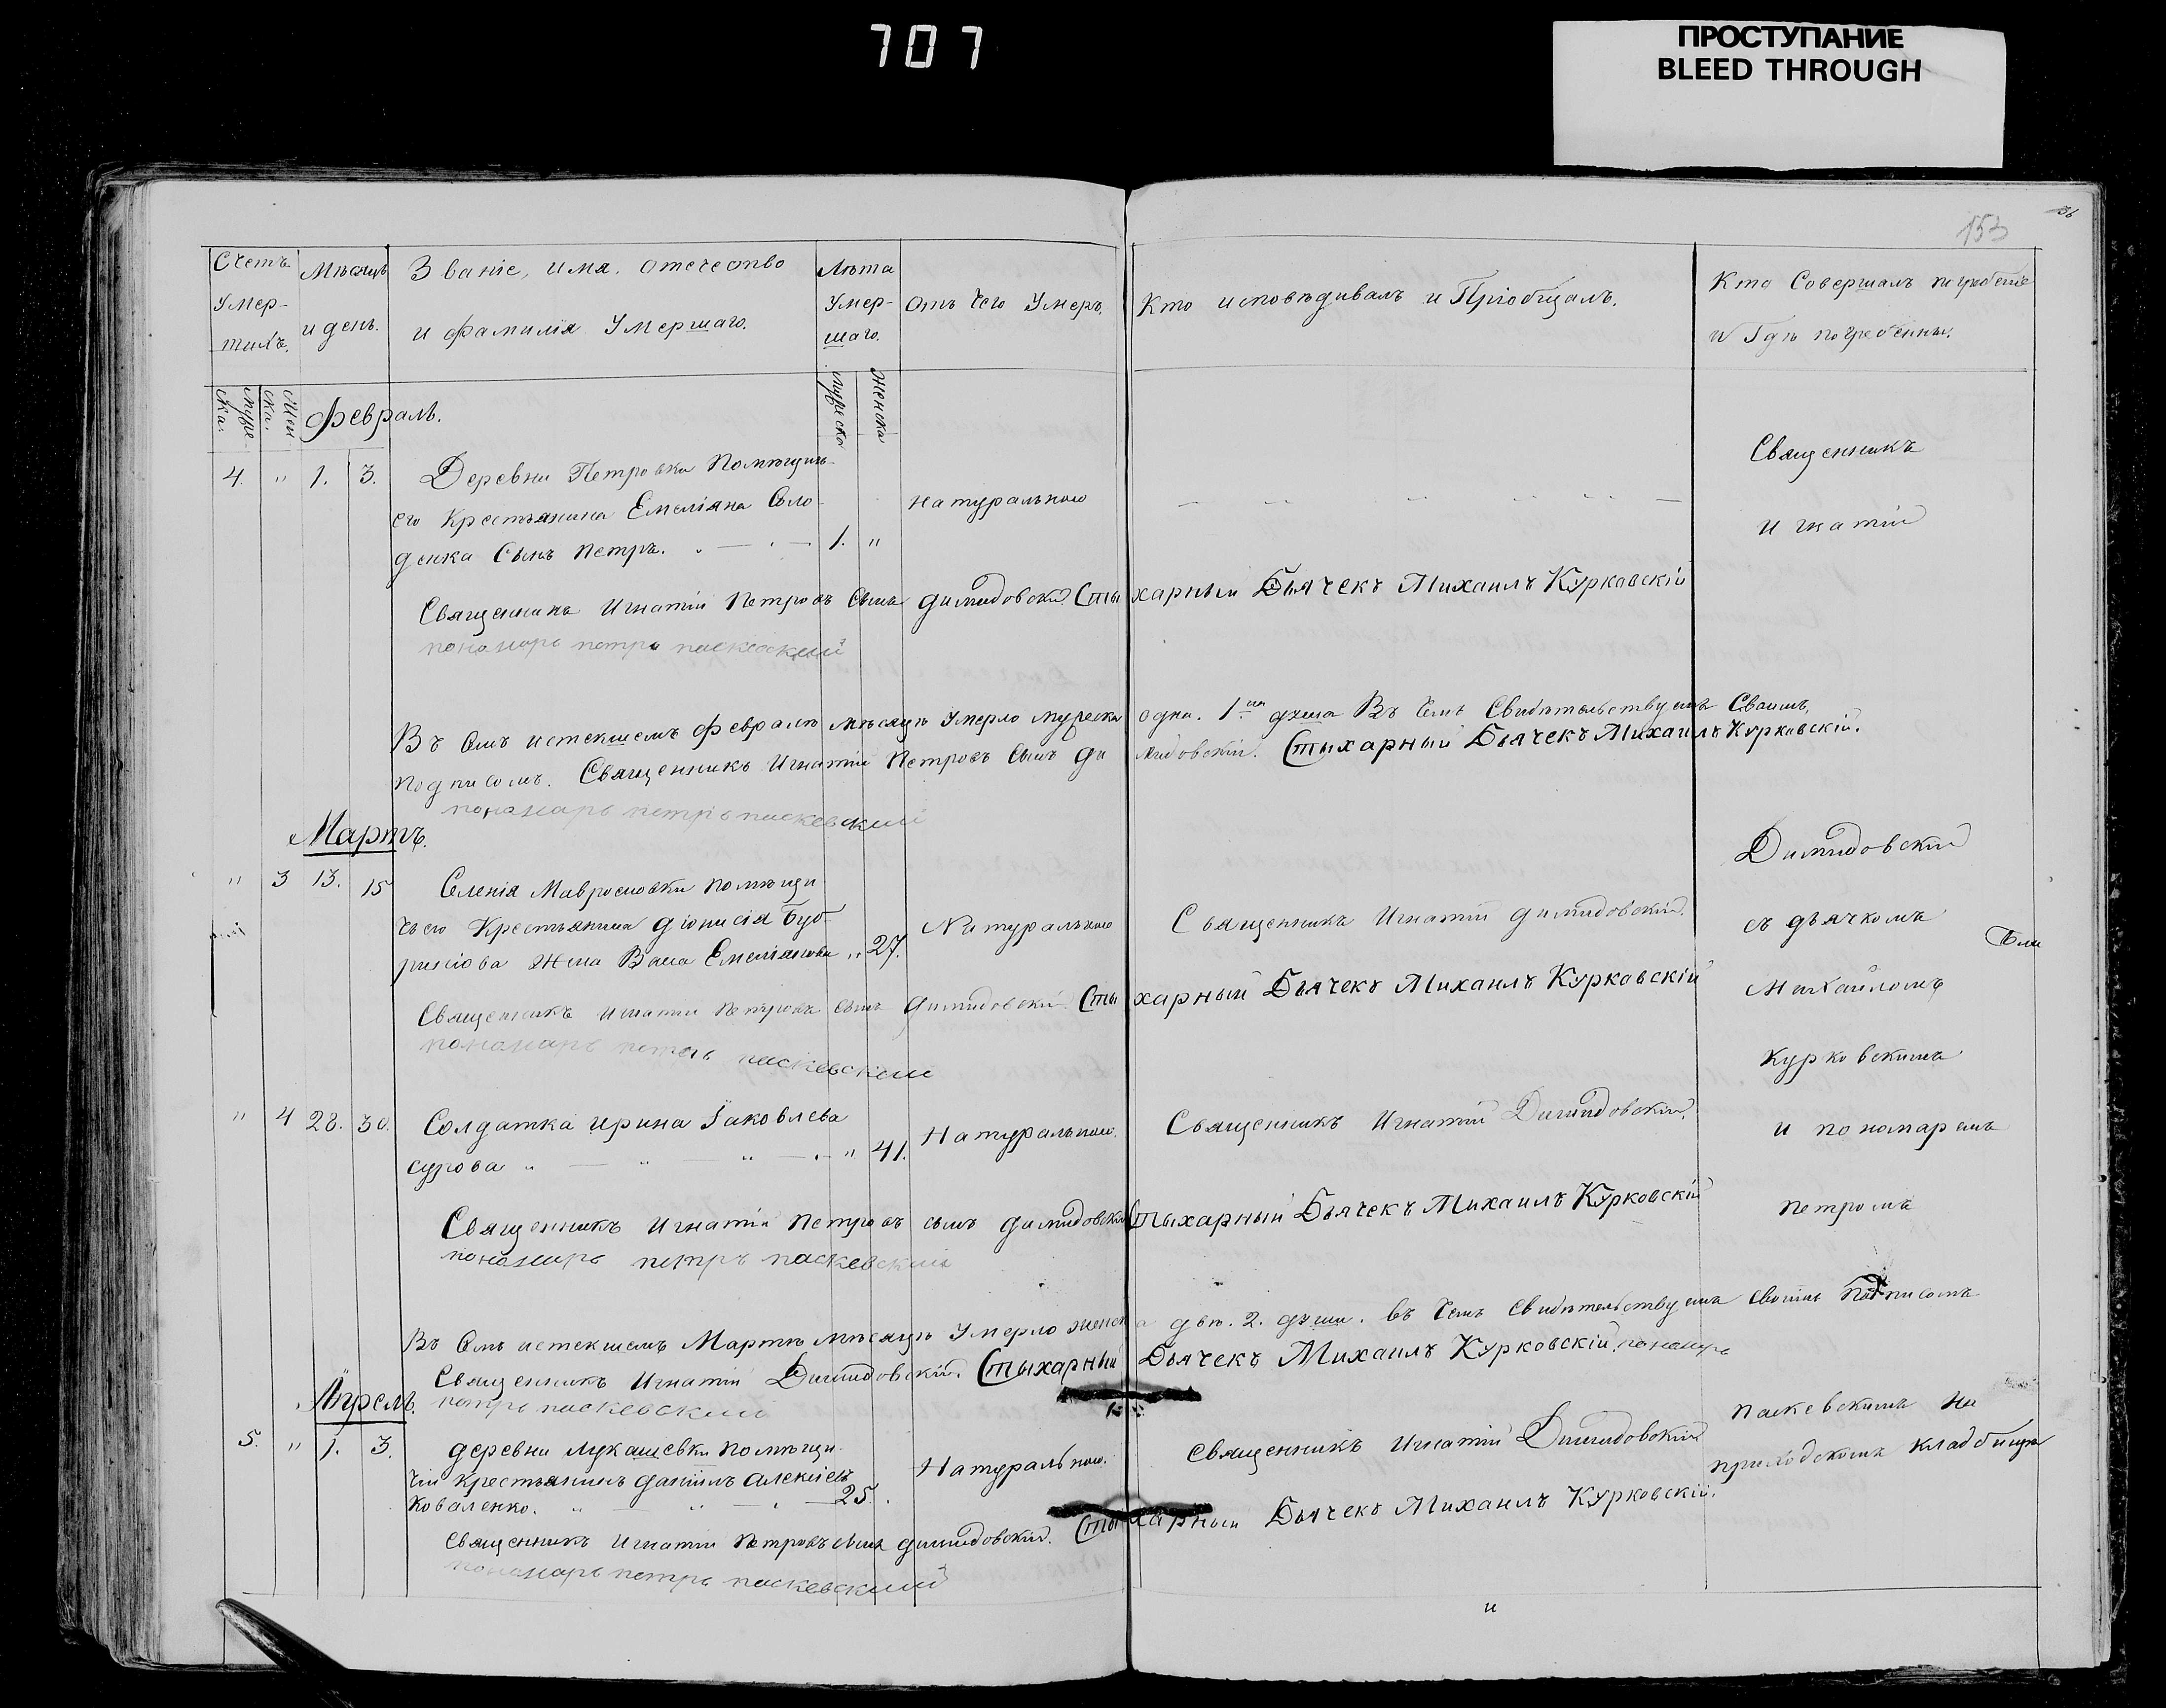 707
ПРОСТУПАНИЕ
BLEED THROUGH
153
36
Счетъ Умер-
шихъ.
Мѣсяцъ
и день.
Званіе, имя, отечество
и фамилія Умершаго.
Лѣта
Умер-
шаго.
Отъ чего Умеръ.
Кто исповѣдивалъ и Пріобщалъ.
Кто Совершалъ погребеніе
и Гдѣ погребенны.
муже-
ска.
Жен
ска.
мужеска
Женска
Февраль.
4. " 1. 3. Деревни Петровки Помѣщичь-
его Крестьянина Емеліяна Соло-
денка Сынъ Петръ. 1. "
натуральною
Священникъ
Игнатій
Священникъ Игнатій Петровъ Сынъ Димидовскій. Стыхарный Дьячекъ Михаилъ Курковскій
пономарь петръ паскевский
Въ Семъ истекшемъ Февралѣ мѣсяцѣ Умерло мужеска одна. 1. душа Въ чемъ Свидѣтельствуемъ Своимъ
подписомъ. Священникъ Игнатій Петровъ Сынъ Димидовскій. Стыхарный Дьячекъ Михаилъ Курковскій.
пономарь петръ паскевский
Мартъ.
" 3 13. 15 Селенія помѣщи
чьего Крестьянина Діонисія
жена Емеліянова " 27.
Натуральною
Священникъ Игнатій Димидовскій.
Димидовскій
съ дьячкомъ
Михайломъ
Священникъ Игнатій Петровъ Сынъ Димидовскій Стыхарный Дьячекъ Михаилъ Курковскій
пономарь петръ паскевский
Курковскимъ
" 4 28. 30. Солдатка Ирина Іаковлева
сурова " 41.
Натуральною.
Священникъ Игнатій Димидовскій.
и пономаремъ
Петромъ
Священникъ Игнатій Петровъ сынъ Димидовскій Стыхарный Дьячекъ Михаилъ Курковскій
пономарь петръ паскевский
Въ Семъ истекшемъ Мартѣ мѣсяцѣ Умерло женска двѣ. 2. души. въ чемъ свидѣтельствуемъ своимъ Подписомъ
Священникъ Игнатій Димидовскій. Стыхарный Дьячекъ Михаилъ Курковскій. пономарь
петръ паскевский
Апрель.
5. " 1. 3. Деревни Лукашевки Помѣщи-
чій крестьянинъ Даніилъ Алексіевъ
Коваленко. 25.
Натуральною.
Священникъ Игнатій Димидовскій
Паскевскимъ на
приходскомъ кладбищѣ
Священникъ Игнатій Петровъ Сынъ Димидовскій. Стыхарный Дьячекъ Михаилъ Курковскій.
пономарь петръ паскевский
и